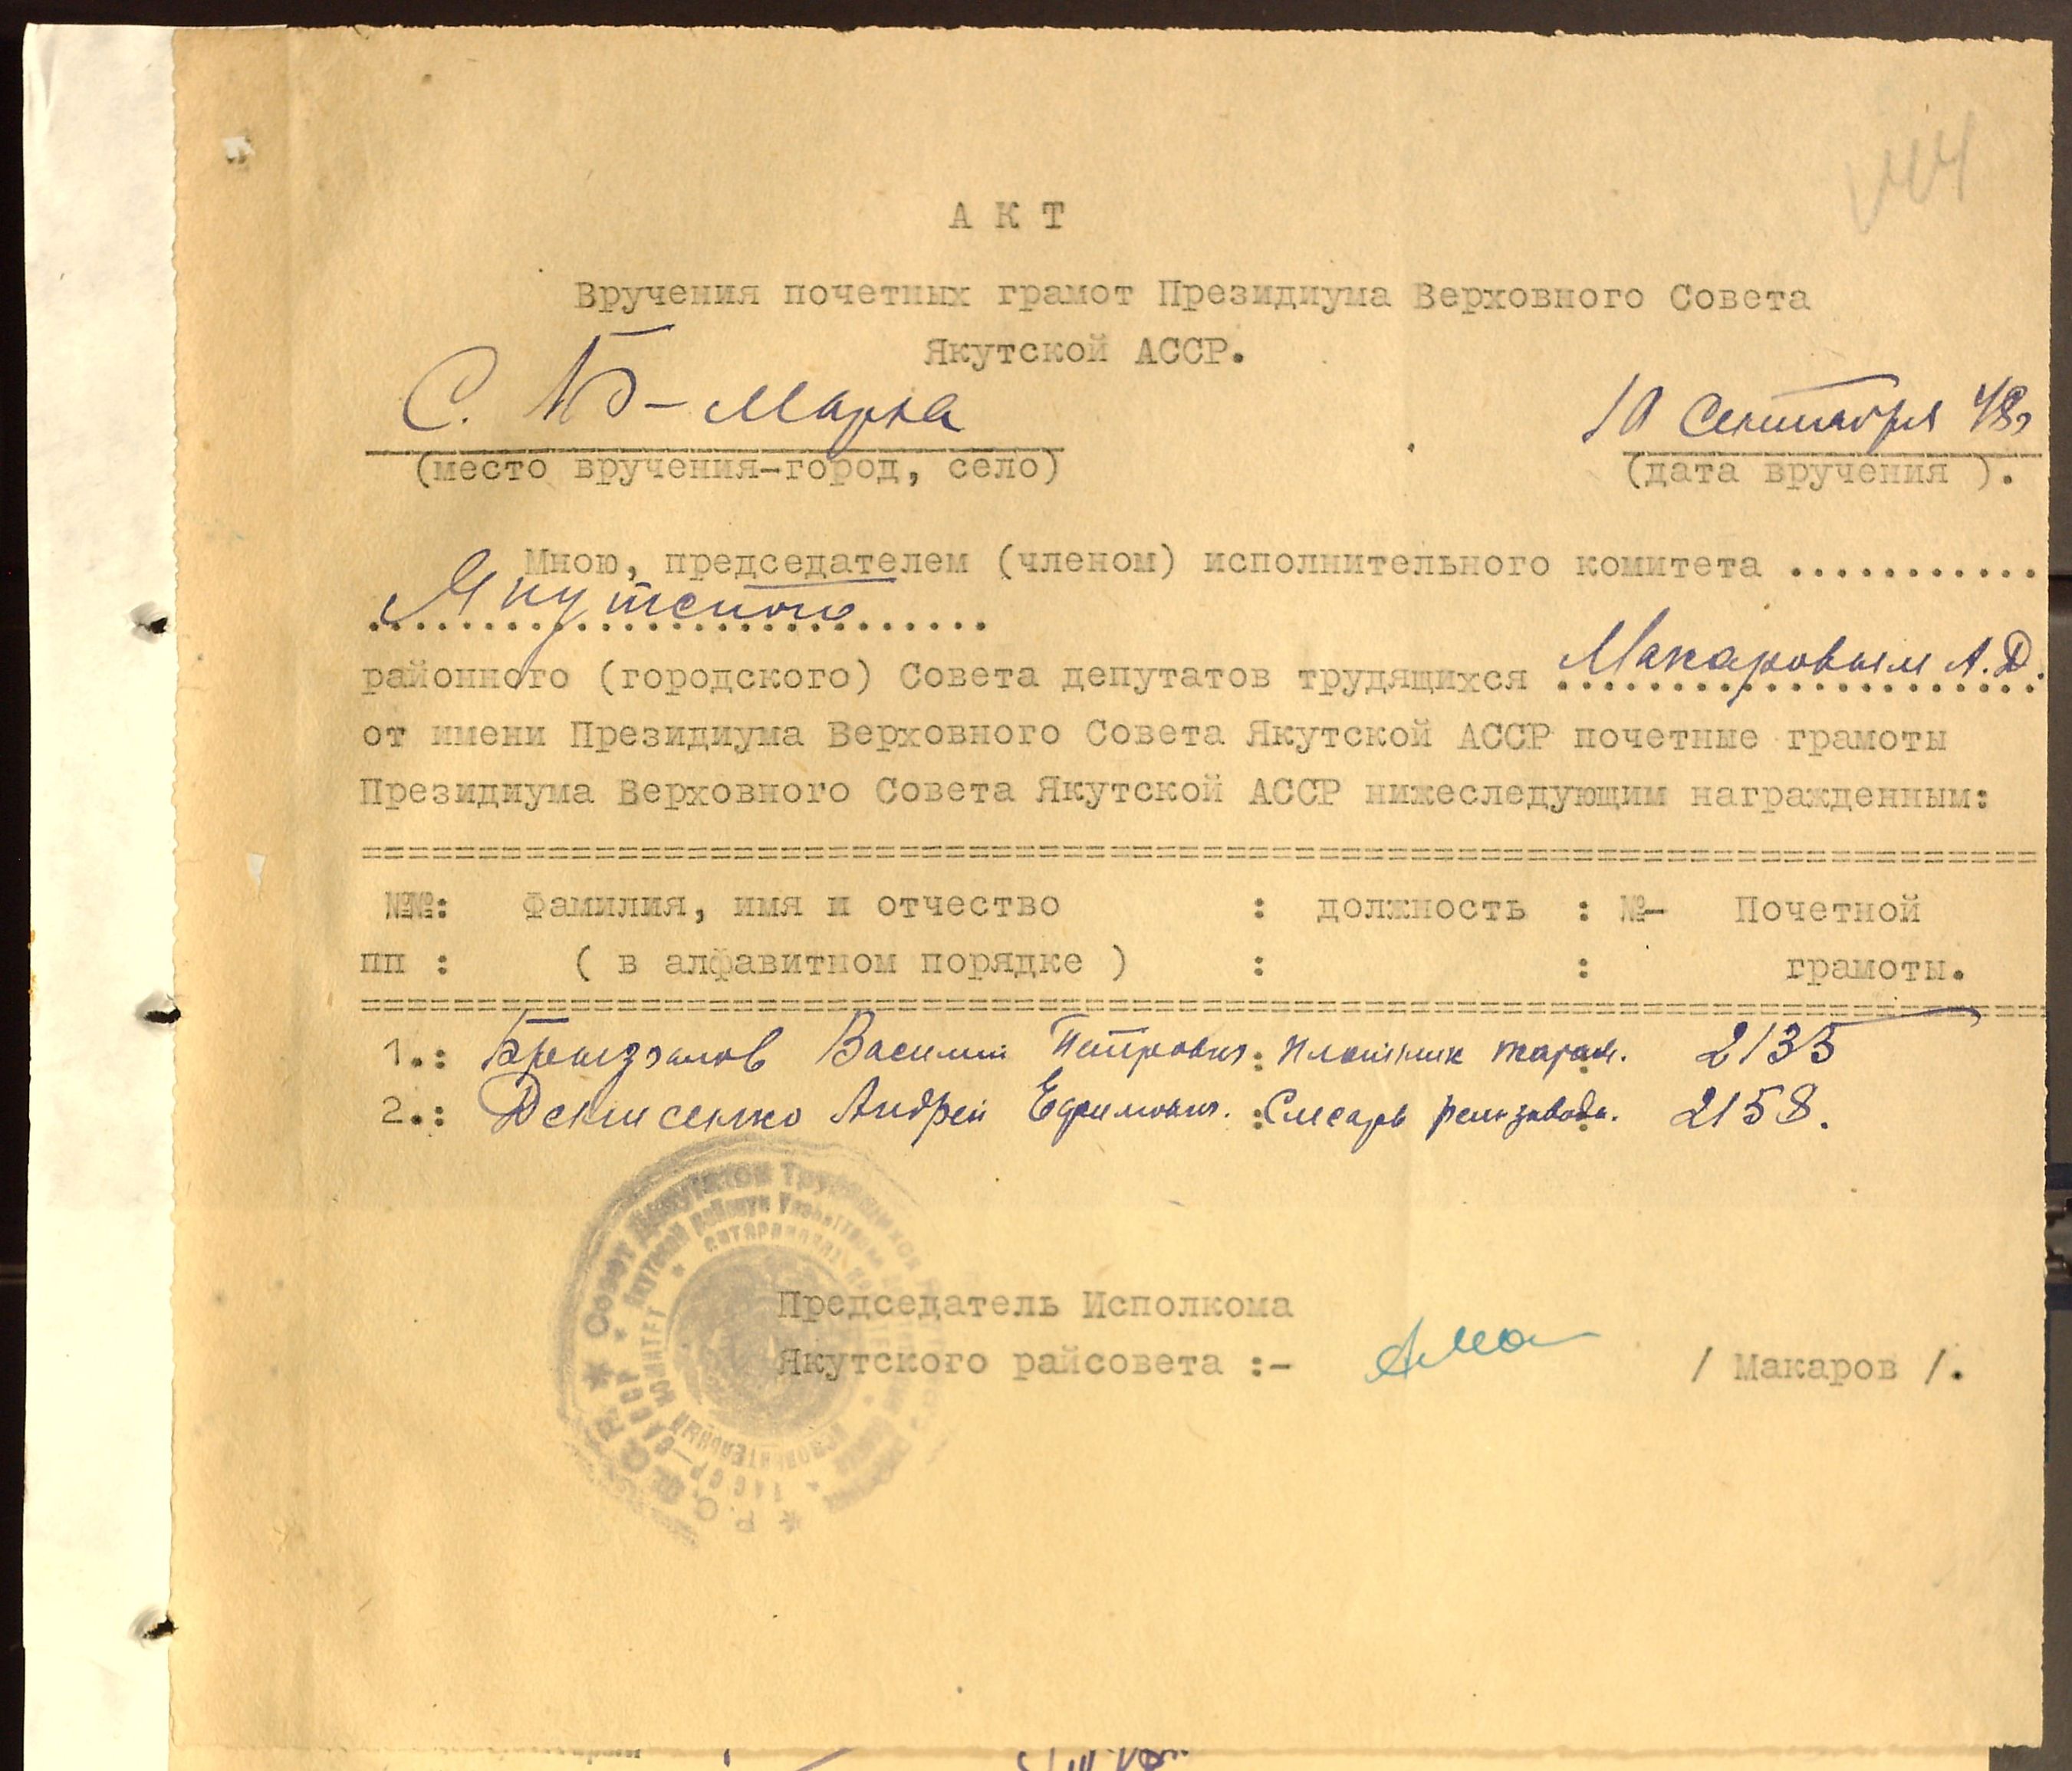 144
А К Т
Вручения почетных грамот Президиума Верховного Совета
Якутской АССР.
С. Б-Марха
10 Сентября 48г
(место вручения-город, село)
(дата вручения ).
Мною, председателем (членом) исполнительного комитета ...........
Якутского
районного (городского) Совета депутатов трудящихся Макаровым А.Д.
от имени Президиума Верховного Совета Якутской АССР почетные грамоты
Президиума Верховного Совета Якутской АССР нижеследующим награжденным:
№№: Фамилия, имя и отчество : должность : №- Почетной
пп : ( в алфавитном порядке ) : : грамоты.
1.: Василий Петрович : плотник 2135
2.: Денисенко Андрей Ефимович. : Слесарь ремзавода. 2158.
Совет Депутатов Трудящихся
Председатель Исполкома
Якутского райсовета :- / Макаров /.